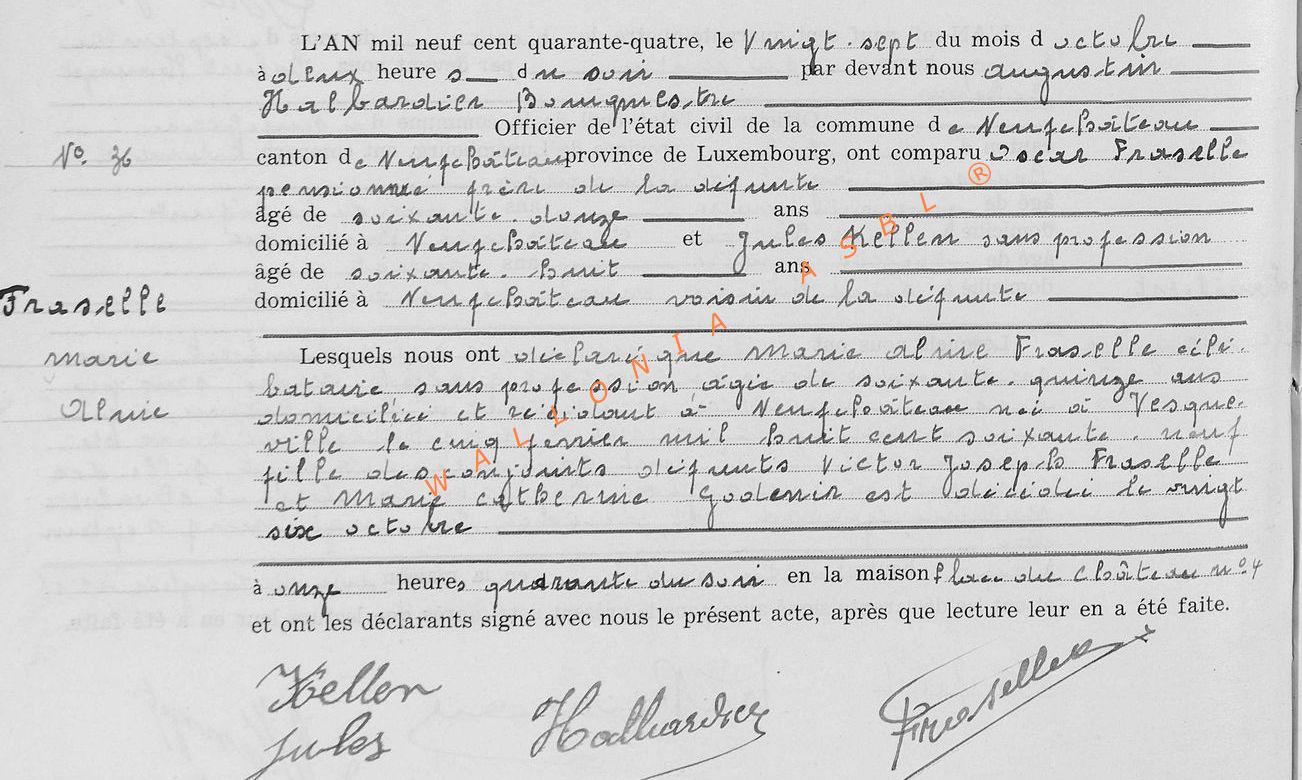 L'AN mil neuf cent quarante-quatre, le Vingt-sept du mois d octobre
à deux heure s du soir par devant nous Augustin
Halbardier Bourgmestre
Officier de l'état civil de la commune de Neufchâteau
N° 36
canton de Neufchâteau province de Luxembourg, ont comparu Oscar Fraselle
pensionné frère de la défunte
âgé de soixante-douze ans
domicilié à Neufchâteau et Jules Kellen sans profession
âgé de soixante-huit ans
Fraselle
domicilié à Neufchâteau voisin de la défunte
Marie
Lesquels nous ont déclaré que Marie Alvire Fraselle céli-
bataire sans profession âgée de soixante-quinze ans
domiciliée et résidant à Neufchâteau né à Vesque-
ville le cinq février mil huit cent soixante-neuf
fille des conjoints défunts Victor Joseph Fraselle
et Marie Catherine Godenir est décédée le vingt
six octobre
à onze heures quarante du soir en la maison place du Château n° 4
et ont les déclarants signé avec nous le présent acte, après que lecture leur en a été faite.
Kellen
Jules
Halbardier
Fraselle
WALLONIA ASBL ®